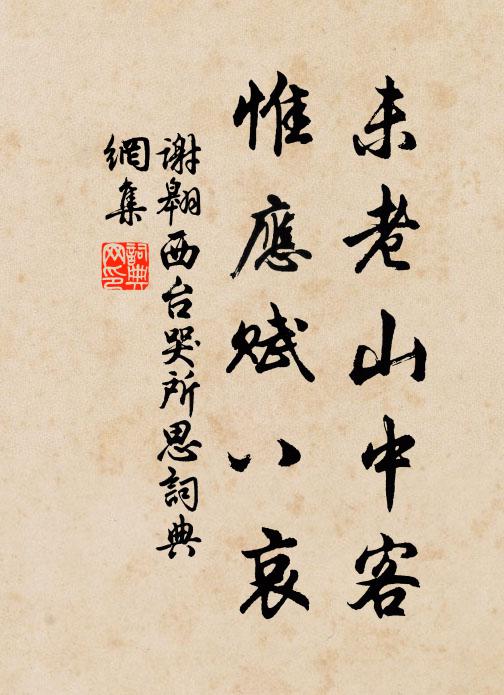 未老山中客
惟應賦八哀
谢翱西台哭所思詞典
網集
詞典
网印